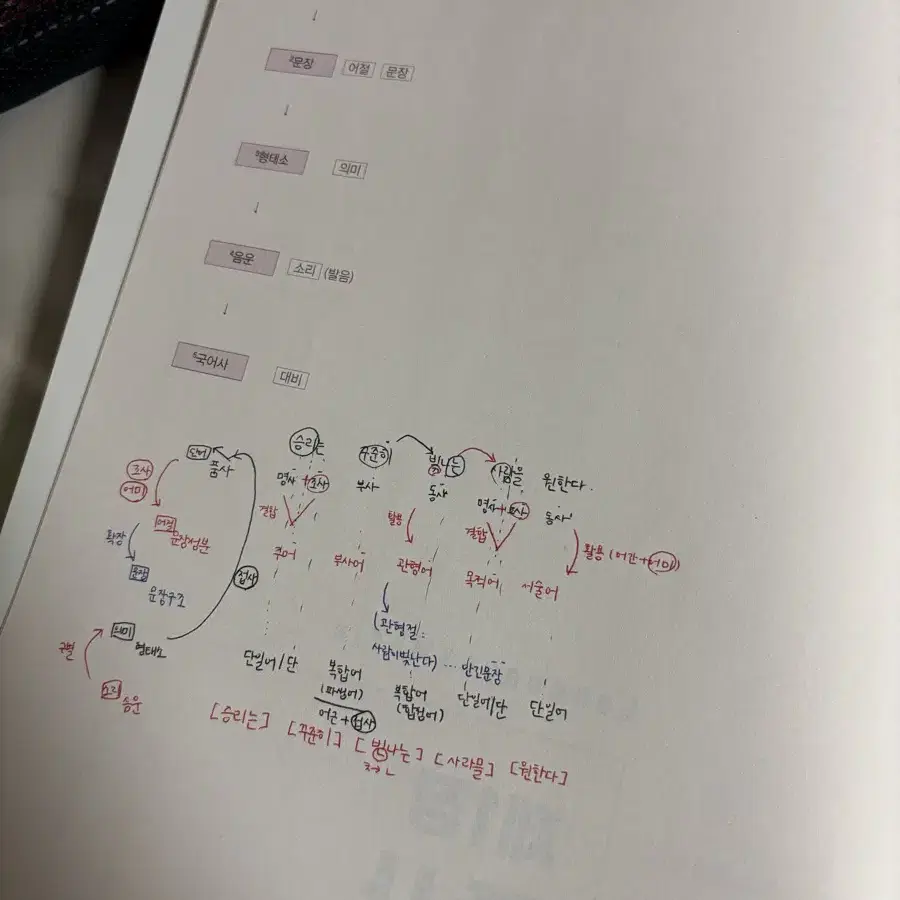 2문장 어절 문장
형태소 의미
음운 소리 (발음)
국어사 대비
승리는 꾸준히 빛나는 사람을 원한다.
단어 품사
명사+조사 부사 동사 명사+조사 동사
조사
어미
결합 활용 결합 활용 (어간+어미)
어절
문장성분
주어 부사어 관형어 목적어 서술어
확장
문장
문장구조
접사
(관형절:
사람이 빛난다) … 안긴문장
의미
형태소
구별
소리
단일어/단 복합어 복합어 단일어/단 단일어
(파생어) (합성어)
어근+접사
[승리는] [꾸준히] [빈나는] [사라믈] [원한다]
ㅊ→ㄴ